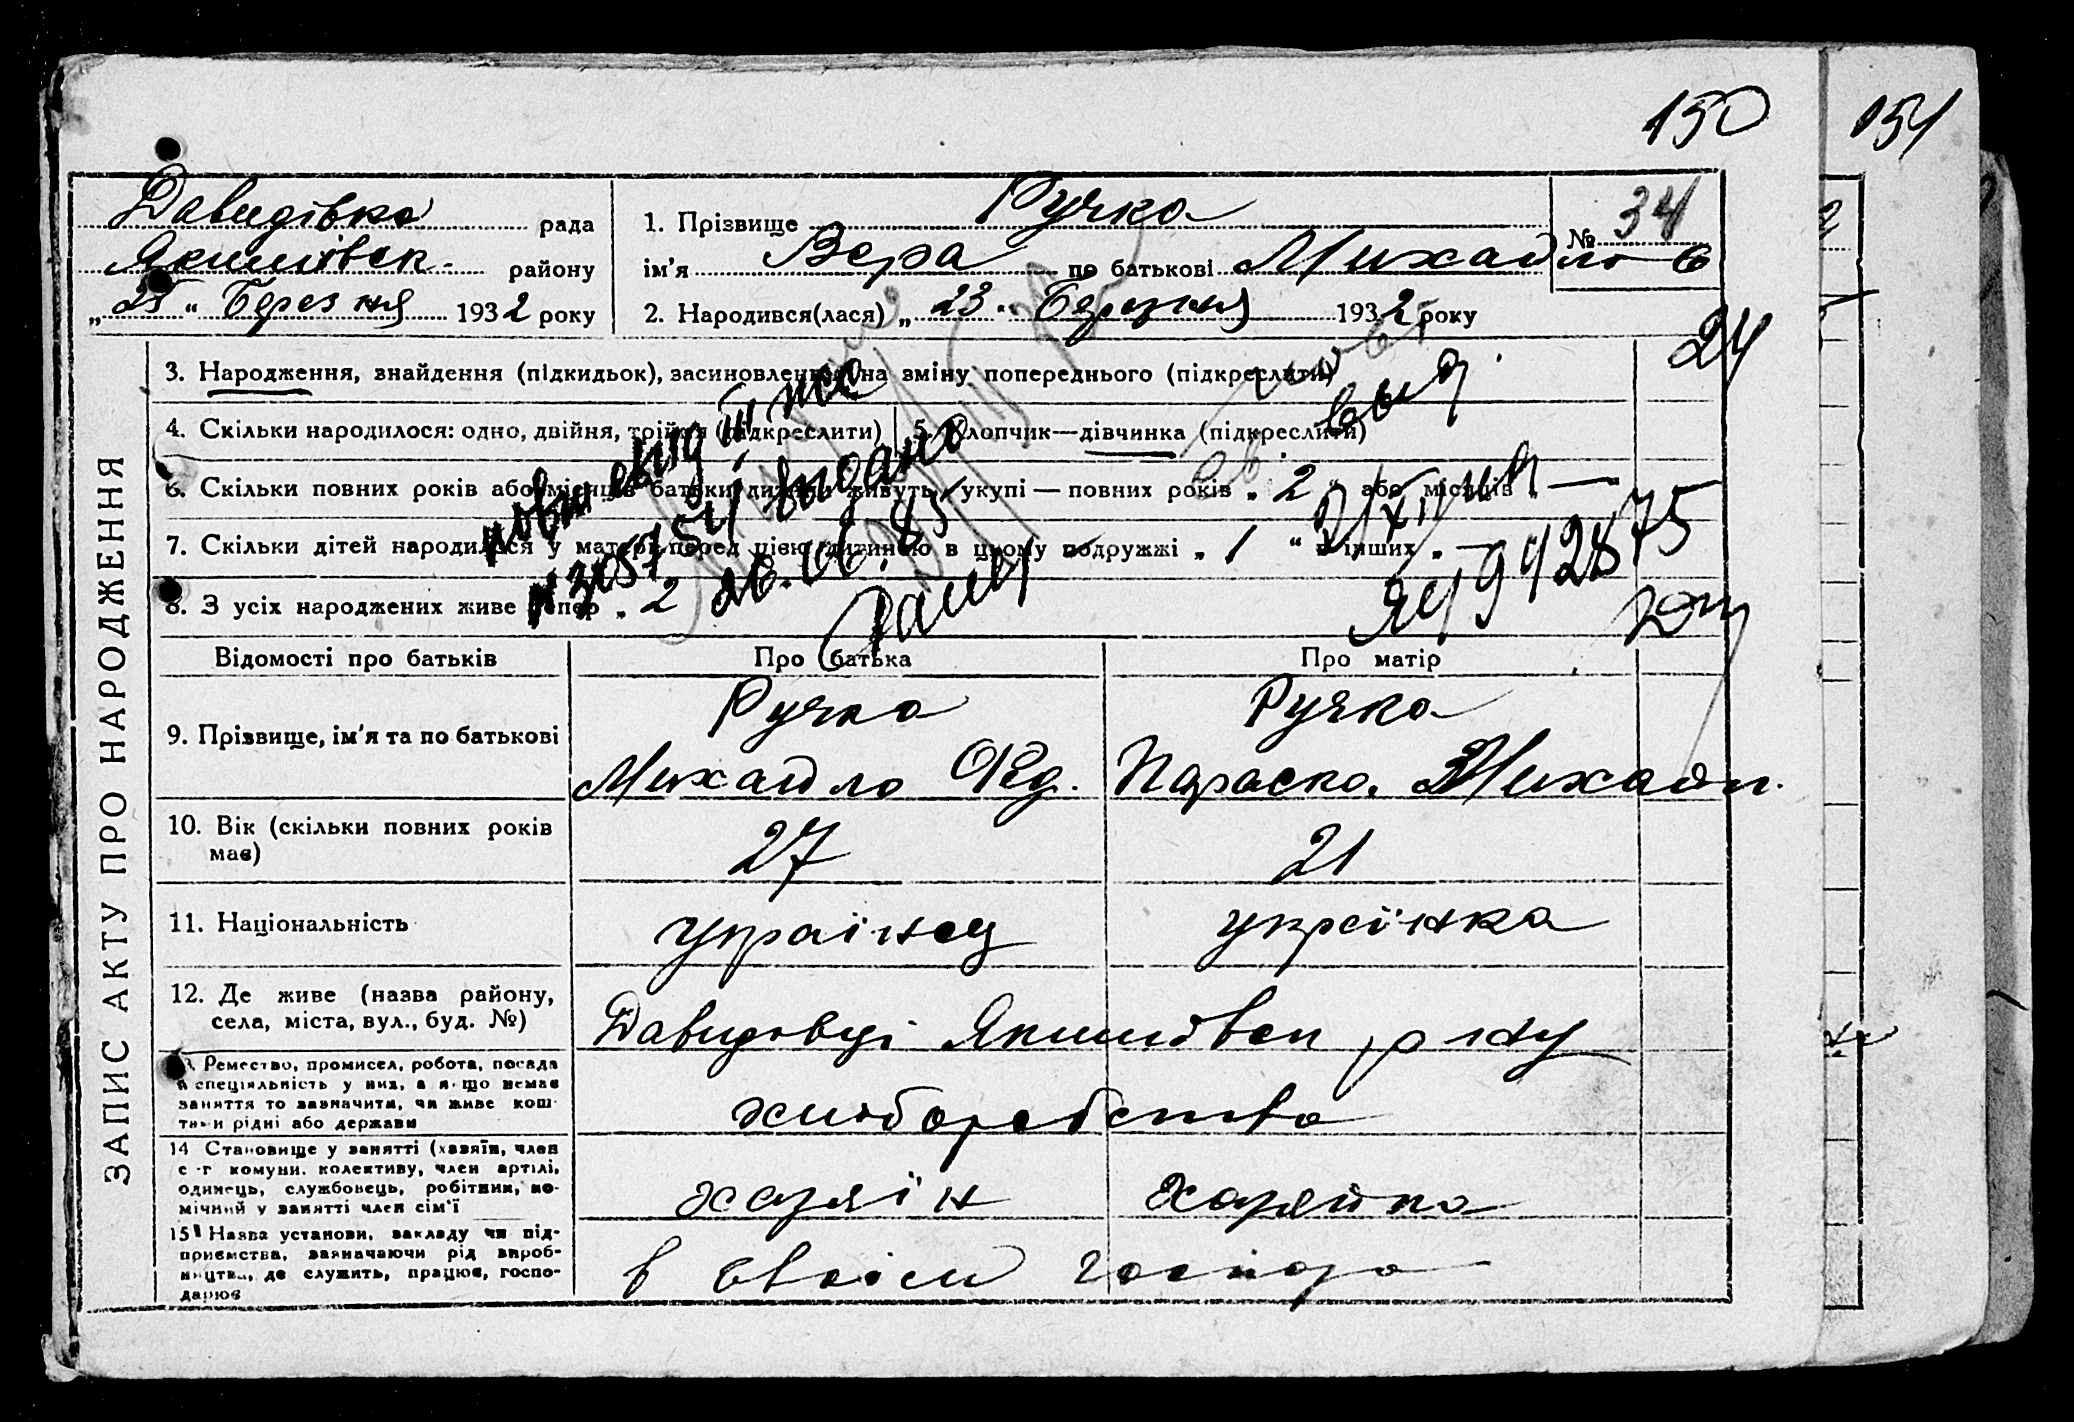 150
151
Давидівка рада
Якимівськ. району
„25“ Березня 1932 року
1. Прізвище Ручка
ім'я Вера по батькові Михайло в
№ 34
2. Народився(лася) „23“ Березня 1932 року
24
3. Народження, знайдення (підкидьок), засиновлення, на зміну попереднього (підкреслити)
4. Скільки народилося: одно, двійня, трійня (підкреслити)
5. Хлопчик—дівчинка (підкреслити)
6. Скільки повних років або місяців батьки дитини живуть укупі — повних років „2“ або місяців „—
7. Скільки дітей народилося у матері перед цією дитиною в цьому подружжі „1“ в інших „—
8. З усіх народжених живе тепер „2
видано
26.06.85
942875
ЗАПИС АКТУ ПРО НАРОДЖЕННЯ
Відомості про батьків
Про батька
Про матір
9. Прізвище, ім'я та по батькові
Ручка
Михайло Фед.
Ручка
Параска. Михайл.
10. Вік (скільки повних років має)
27
21
11. Національність
українец
українка
12. Де живе (назва району,
села, міста, вул., буд. №)
Давидовці Якимівськ р-ну
13. Ремество, промисел, робота, посада
й спеціяльність у них, а якщо немає
заняття то зазначити, чи живе кош-
тами рідні або держави
хліборобство
14 Становище у занятті (хазяїн, член
с.-г комуни, колективу, член артілі,
одинець, службовець, робітник, по-
мічний у занятті член сім'ї
хазяїн
хазяйка
15 Назва установи, закладу чи під-
приємства, зазначаючи рід вироб-
ництва, де служить, працює, госпо-
дарює
в своїм господа